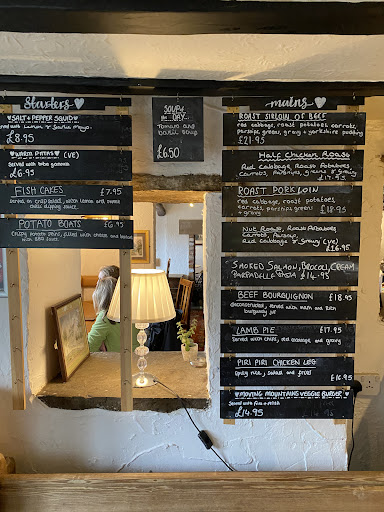 Starters
♥SALT + PEPPER SQUID♥
Served with Lemon + Garlic Mayo.
£8.95
(VE)
£6.95
FISH CAKES £7.95
Served on crisp salad, with lemon and
chilli dipping sauce.
POTATO BOATS £6.95
Crispy potato skins, filled with cheese and bacon
with BBQ sauce
SOUP of
the DAY
Tomato and
basil soup
£6.50
mains
ROAST SIRLOIN OF BEEF
red cabbage, roast potatoes, carrots,
parsnips, greens, gravy + yorkshire pudding
£21.95
Half Chicken Roast
Red Cabbage, Roast Potatoes,
Carrots, Parsnips, greens & Gravy
£17.95
ROAST PORK LOIN
red cabbage, roast potatoes,
carrots, parsnips, greens £18.95
+ gravy
Nut Roast, Roast Potatoes
Carrots, Parsnip,
Red Cabbage & Gravy (VE)
£16.95
SMOKED SALMON, BROCOLI, CREAM
PAPPADELLE PASTA £14.95
BEEF BOURGUIGNON £18.95
deconstructed, served with mash and rich
burgundy jus
LAMB PIE £17.95
Served with chips, red cabbage and gravy
PIRI PIRI CHICKEN LEG
Spicy rice, salad and fries £16.95
♥MOVING MOUNTAINS VEGGIE BURGER♥
Served with Fries + Relish
£14.95